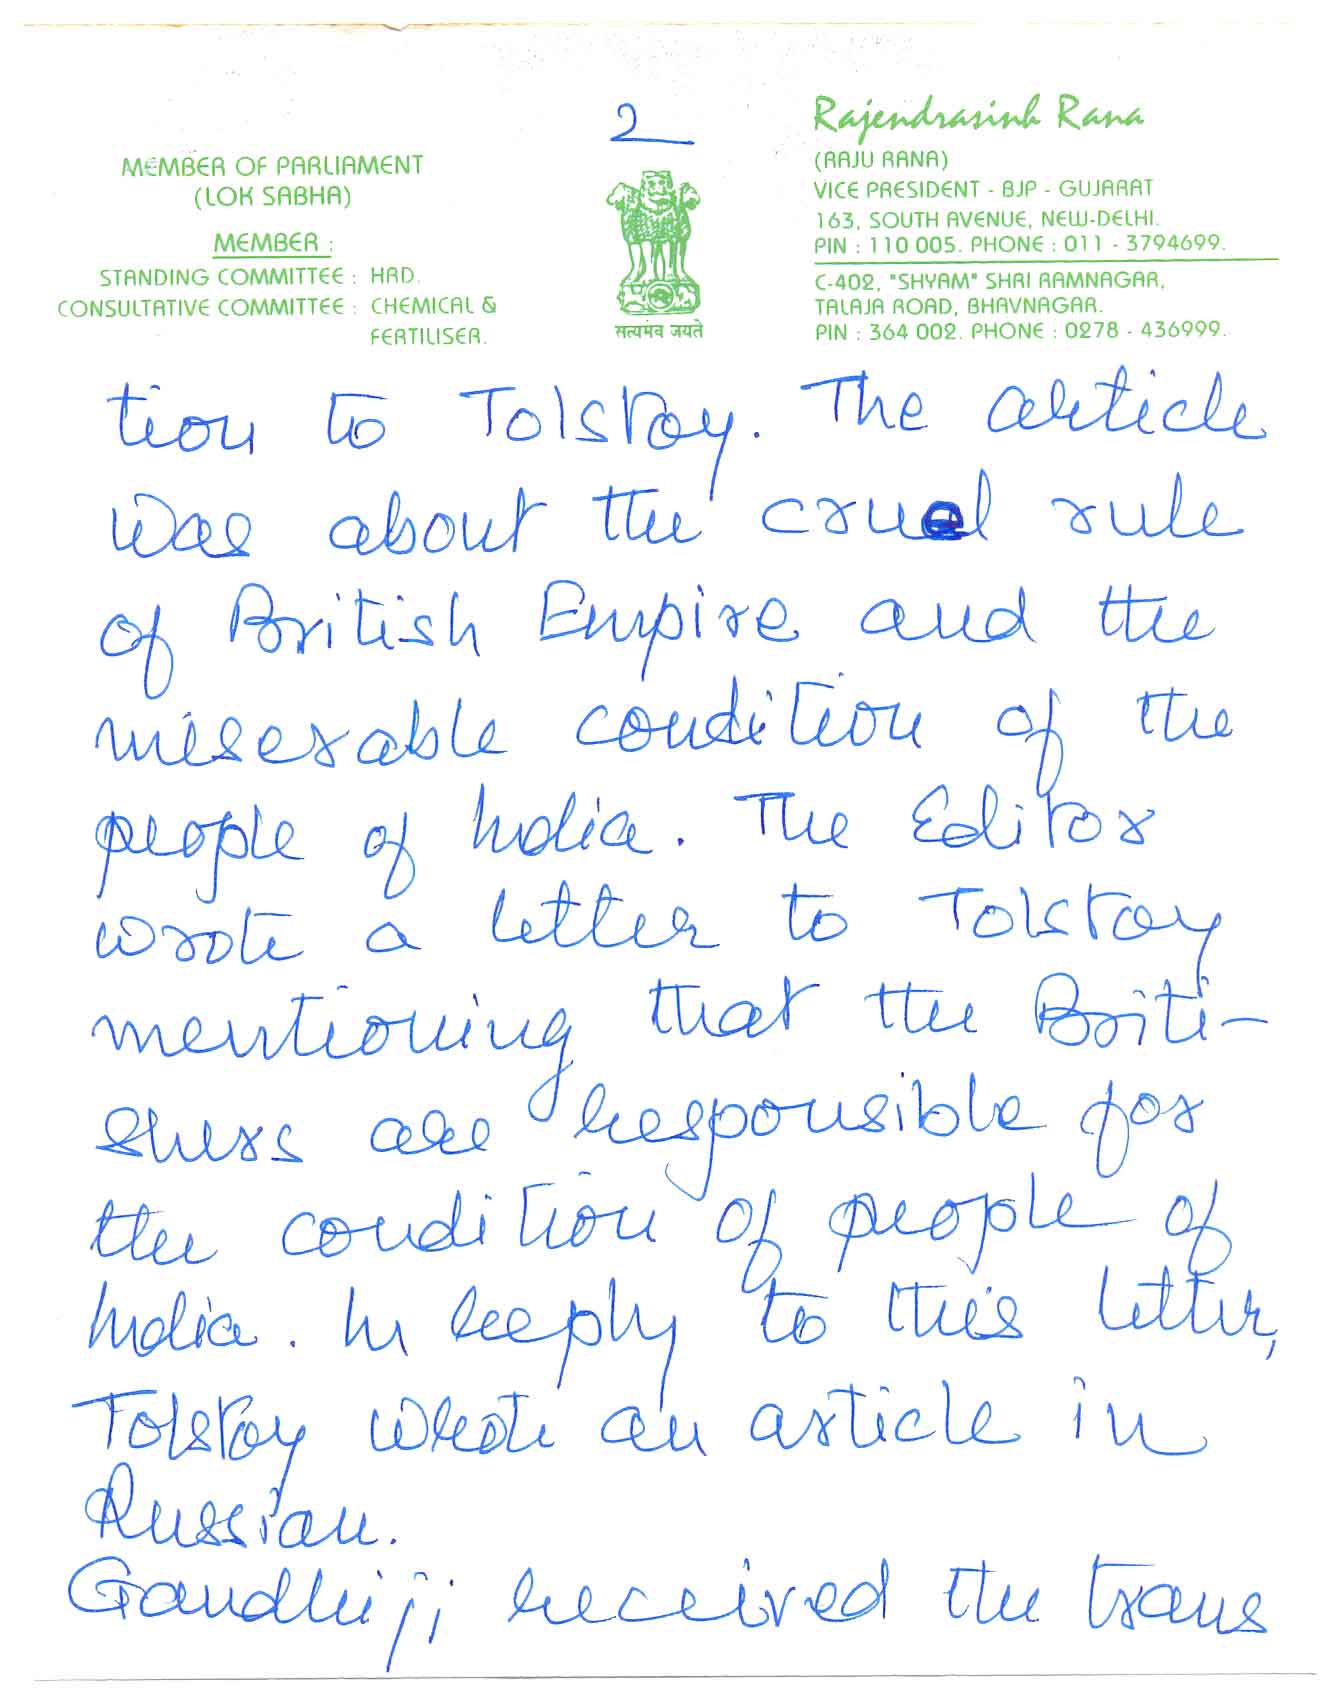 2
MEMBER OF PARLIAMENT
(LOK SABHA)
MEMBER :
STANDING COMMITTEE : HRD.
CONSULTATIVE COMMITTEE : CHEMICAL &
FERTILISER.
सत्यमेव जयते
Rajendrasinh Rana
(RAJU RANA)
VICE PRESIDENT - BJP - GUJARAT
163, SOUTH AVENUE, NEW-DELHI.
PIN : 110 005. PHONE : 011 - 3794699.
C-402, "SHYAM" SHRI RAMNAGAR,
TALAJA ROAD, BHAVNAGAR.
PIN : 364 002. PHONE : 0278 - 436999.
tion to Tolstoy. The article
was about the cruel rule
of British Empire and the
miserable condition of the
people of India. The Editor
wrote a letter to Tolstoy
mentioning that the Briti-
shers are responsible for
the condition of people of
India. In reeply to this letter,
Tolstoy wrote an article in
Russian.
Gandhiji received the trans